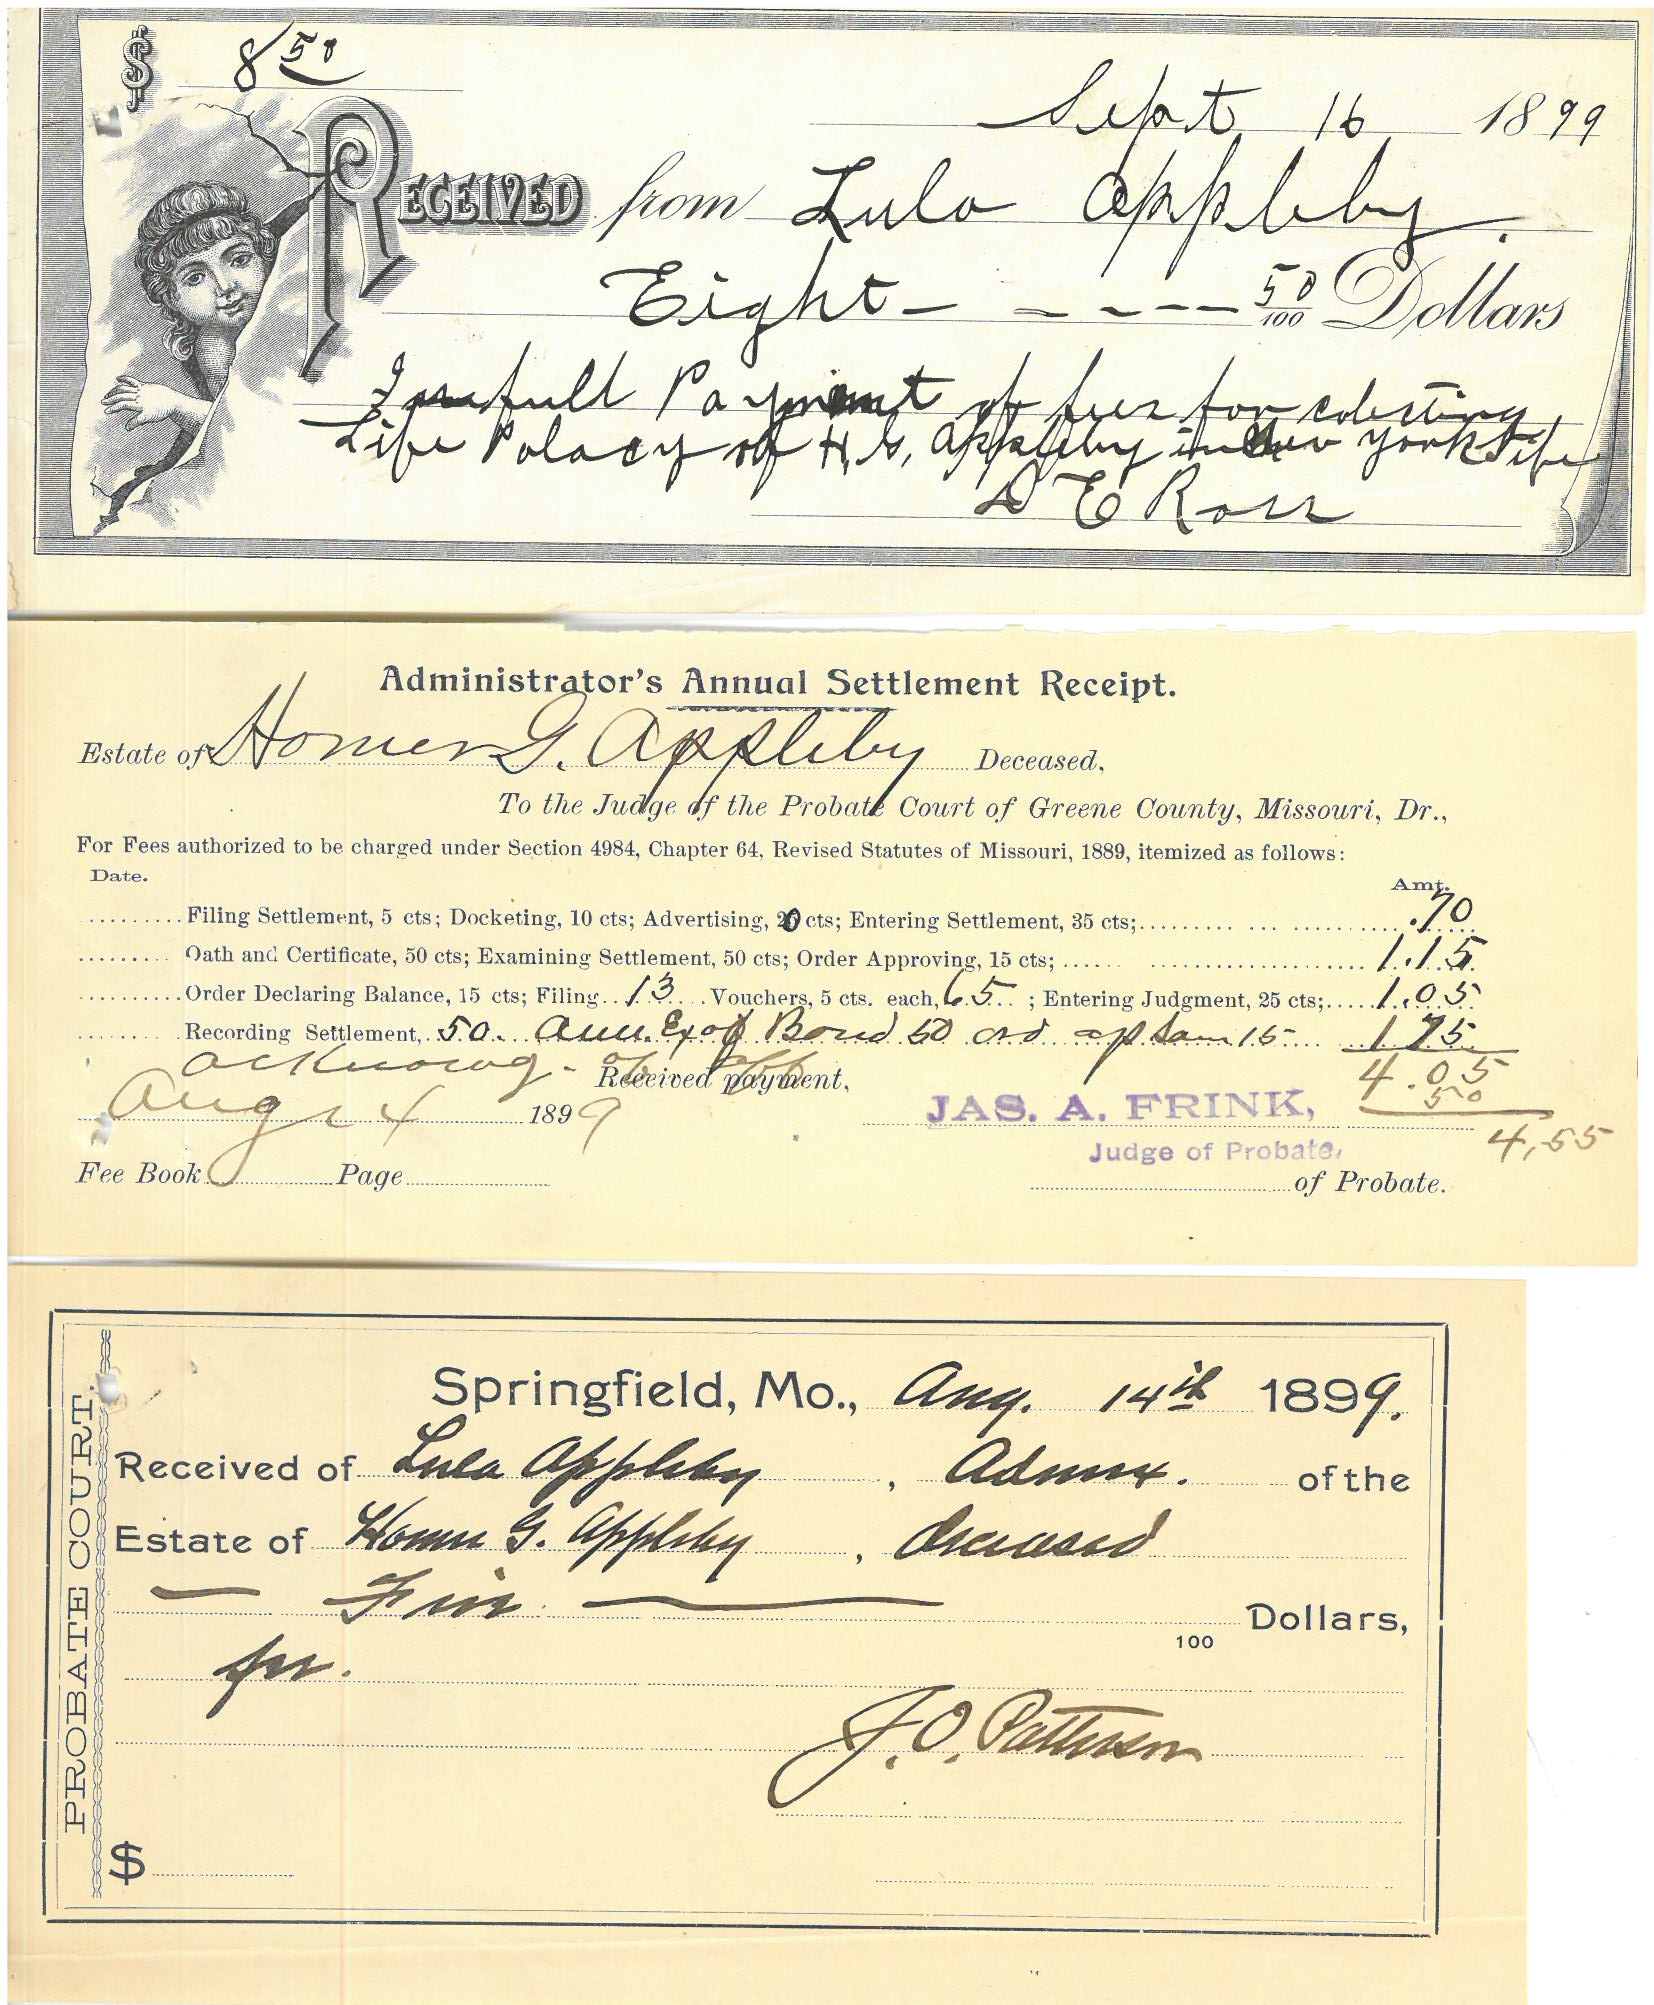 $ 8 50
Sept 16 1899
Received from Lula Appleby.
Eight - - - - - 50/100 Dollars
In full Payment of fees for colecting
Life Polacy of H, G, Appleby in New York Life
D E Ross
Administrator's Annual Settlement Receipt.
Estate of Homer G. Appleby Deceased,
To the Judge of the Probate Court of Greene County, Missouri, Dr.,
For Fees authorized to be charged under Section 4984, Chapter 64, Revised Statutes of Missouri, 1889, itemized as follows:
Date. Amt.
Filing Settlement, 5 cts; Docketing, 10 cts; Advertising, 20 cts; Entering Settlement, 35 cts; .70
Oath and Certificate, 50 cts; Examining Settlement, 50 cts; Order Approving, 15 cts; 1.15
Order Declaring Balance, 15 cts; Filing 13 Vouchers, 5 cts. each, 65 ; Entering Judgment, 25 cts; 1.05
Recording Settlement, 50. Ann. Ex of Bond 50 ord ap sam 15 1 15
acknowg. of Received payment, 4.05
50
Aug 14 1899 JAS. A. FRINK, 4,55
Judge of Probate,
Fee Book Page of Probate.
PROBATE COURT.
Springfield, Mo., Aug. 14th 1899.
Received of Lula Appleby , Admx. of the
Estate of Homer G. Appleby , deceased
— Five — Dollars,
100
fee.
J. O. Patterson
$